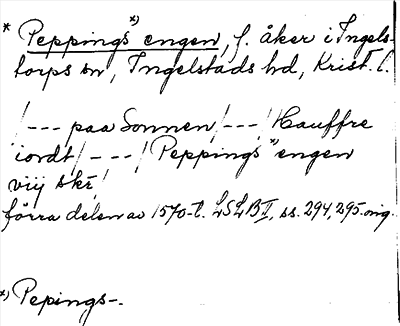 * Peppings*) engen, f. åker i Ingels-
torps sn, Ingelstads hd, Krist. l.
/--- paa Sonnen/---/Hauffre
iordt/---/Peppings*) engen
viij skr̄/
förra delen av 1570-t. LSLB I, ss. 294, 295. orig.
*) Pepings-.